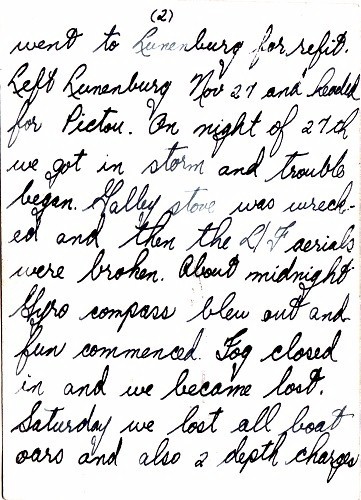 (2)
went to Lunenburg for refit.
Left Lunenburg Nov 27 and headed
for Pictou. On night of 27th
we got in storm and trouble
began. Galley stove was wreck-
ed and then the D/F aerials
were broken. About midnight
Gyro compass blew out and
fun commenced. Fog closed
in and we became lost.
Saturday we lost all boat
oars and also 2 depth charges